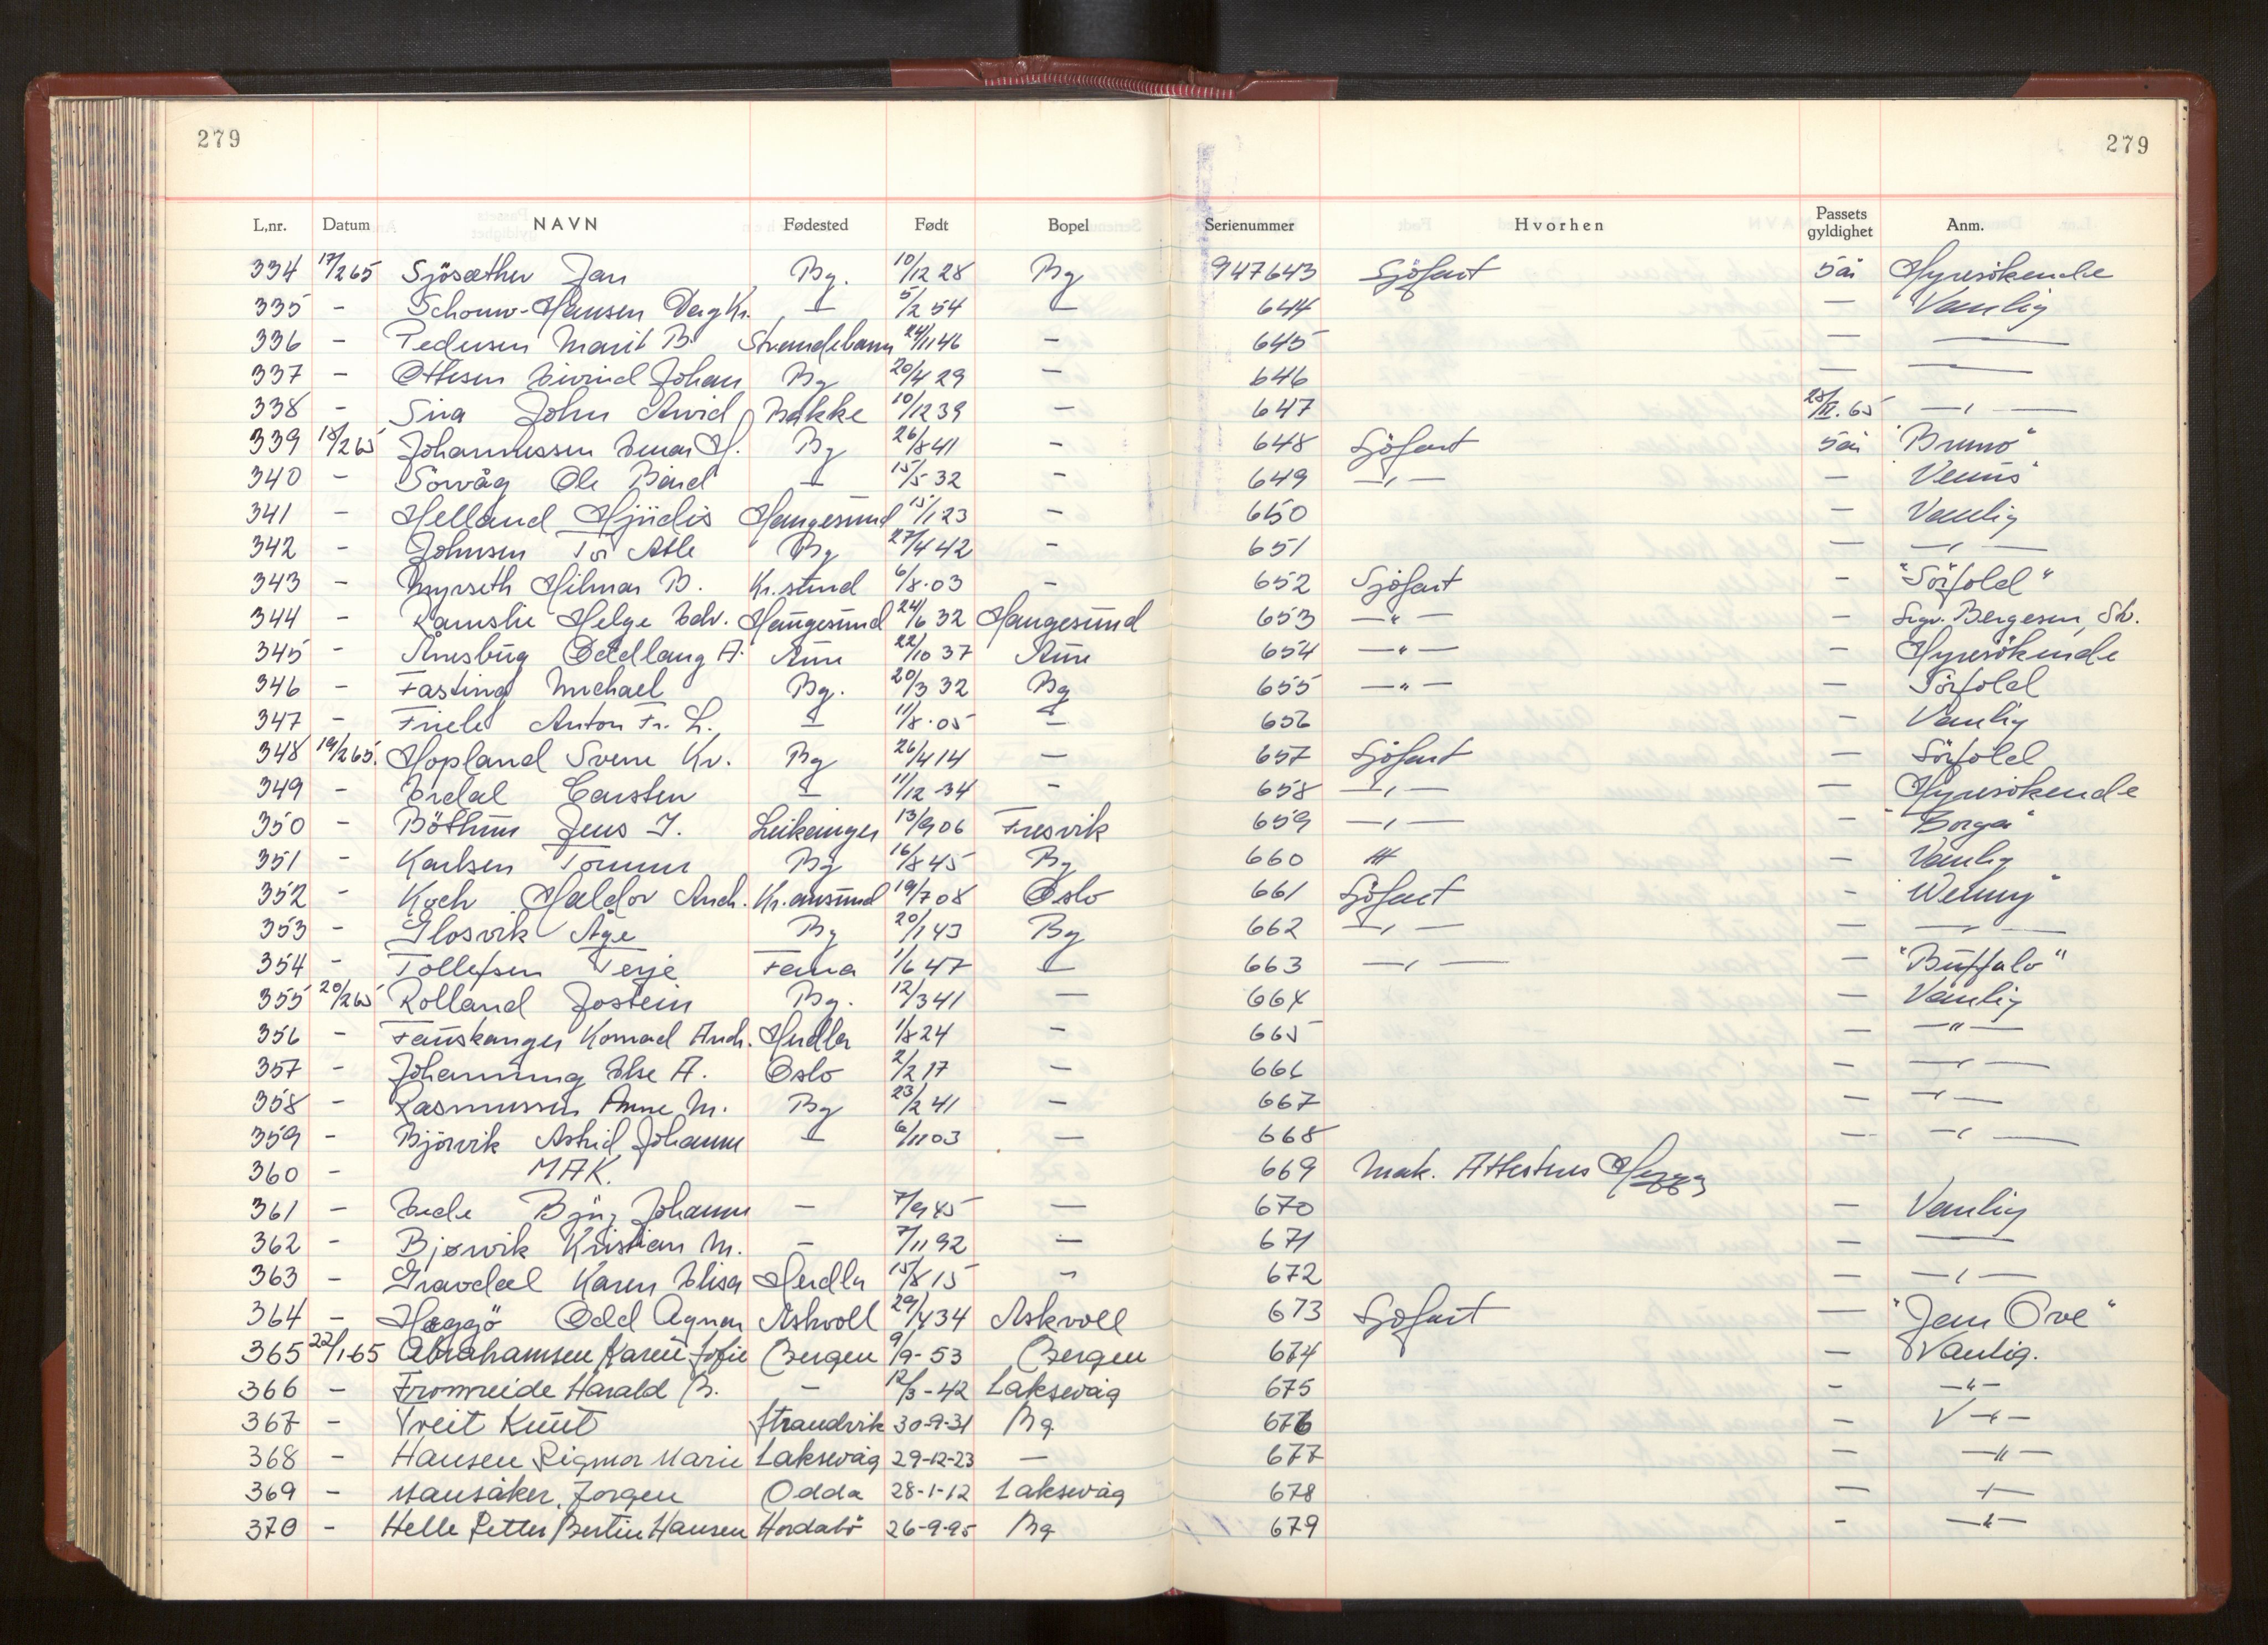 279 279
L,nr. Datum NAVN Fødested Født Bopel Serienummer Hvorhen Passets gyldighet Anm.
334 17/2 65 Sjösæther Jan Bg. 10/12 28 Bg 947643 Sjöfart 5 år Hyresökende
335 - Schouw-Hansen Dag Kr. — 5/2 54 — 644 — Vanlig
336 - Pedersen Marit B. Strandebarm 24/11 46 - 645 — —
337 - Ottesen Eivind Johan Bg 20/4 29 - 646 — —
338 - Sira John Arvid Bakke 10/12 39 - 647 28/II.65 —„—
339 18/2 65 Johannessen Einar H. Bg 26/8 41 - 648 Sjöfart 5 år "Bruno"
340 - Sörvåg Ole Bård — 15/5 32 - 649 —„— — "Venus"
341 - Helland Hjördis Haugesund 15/1 23 - 650 - Vanlig
342 - Johnsen Tor Atle Bg 27/4 42 - 651 — —„—
343 - Myrseth Hilmar B. Kr.sund 6/8.03 - 652 Sjöfart - "Sörfold"
344 - Ramslie Helge Edv. Haugesund 24/6 32 Haugesund 653 —„— - Sigv. Bergesen, St.
345 - Aune 22/10 37 Aune 654 —„— - Hyresökende
346 - Fasting Michael Bg. 20/3 32 Bg 655 —„— — Sörfold
347 - Friele Anton Fr. L. — 11/8.05 — 656 - Vanlig
348 19/2 65. Hopland Sverre Kr. Bg 26/4 14 — 657 Sjöfart — Sörfold
349 - Erdal Carsten — 11/12 34 - 658 —„— — Hyresökende
350 - Böthun Jens J. Leikanger 13/9 06 Fresvik 659 —„— - "Borga"
351 - Karlsen Tommy Bg 16/8 45 Bg 660 — Vanlig
352 - Koch Haldor And. Kr.ansund 19/7 08 Oslo 661 Sjöfart - "Wenny"
353 - Glosvik Åge Bg 20/1 43 Bg 662 —„— — —„—
354 - Tollefsen Terje Fana 1/6 47 — 663 —„— — "Buffalo"
355 20/2 65 Rolland Jostein Bg. 12/3 41 — 664 — Vanlig
356 - Fauskanger Konrad Andr. Herdla 1/8 24 - 665 — —„—
357 - Johanning Else A. Oslo 2/2 17 - 666 — —„—
358 - Rasmussen Anne M. Bg 23/2 41 - 667 — —„—
359 - Björvik Astrid Johanne — 6/11 03 — 668 — —„—
360 - MAK. 669 Mak. Attesteres
361 - Eide Björg Johanne — 7/9 45 — 670 — Vanlig
362 - Bjørvik Kristian M. - 7/11 92 — 671 — —
363 - Gravdal Karen Elisa Herdla 15/8 15 - 672 — —„—
364 - Heggö Odd Agnar Askvoll 29/4 34 Askvoll 673 Sjöfart — "Jan Ove"
365 22/1-65 Abrahamsen Karen Sofie Bergen 9/9-53 Bergen 674 — Vanlig.
366 - Fromreide Harald B. - 12/3-42 Laksevåg 675 - —„—
367 - Treit Knut Strandvik 30-9-31 Bg 676 — —„—
368 - Hansen Rigmor Marie Laksevåg 29-12-23 — 677 — —„—
369 - Mausåker, Jørgen Odda 28-1-12 Laksevåg 678 — —„—
370 - Helle Petter Bertin Hansen Hordabö 26-9-95 Bg 679 - —„—